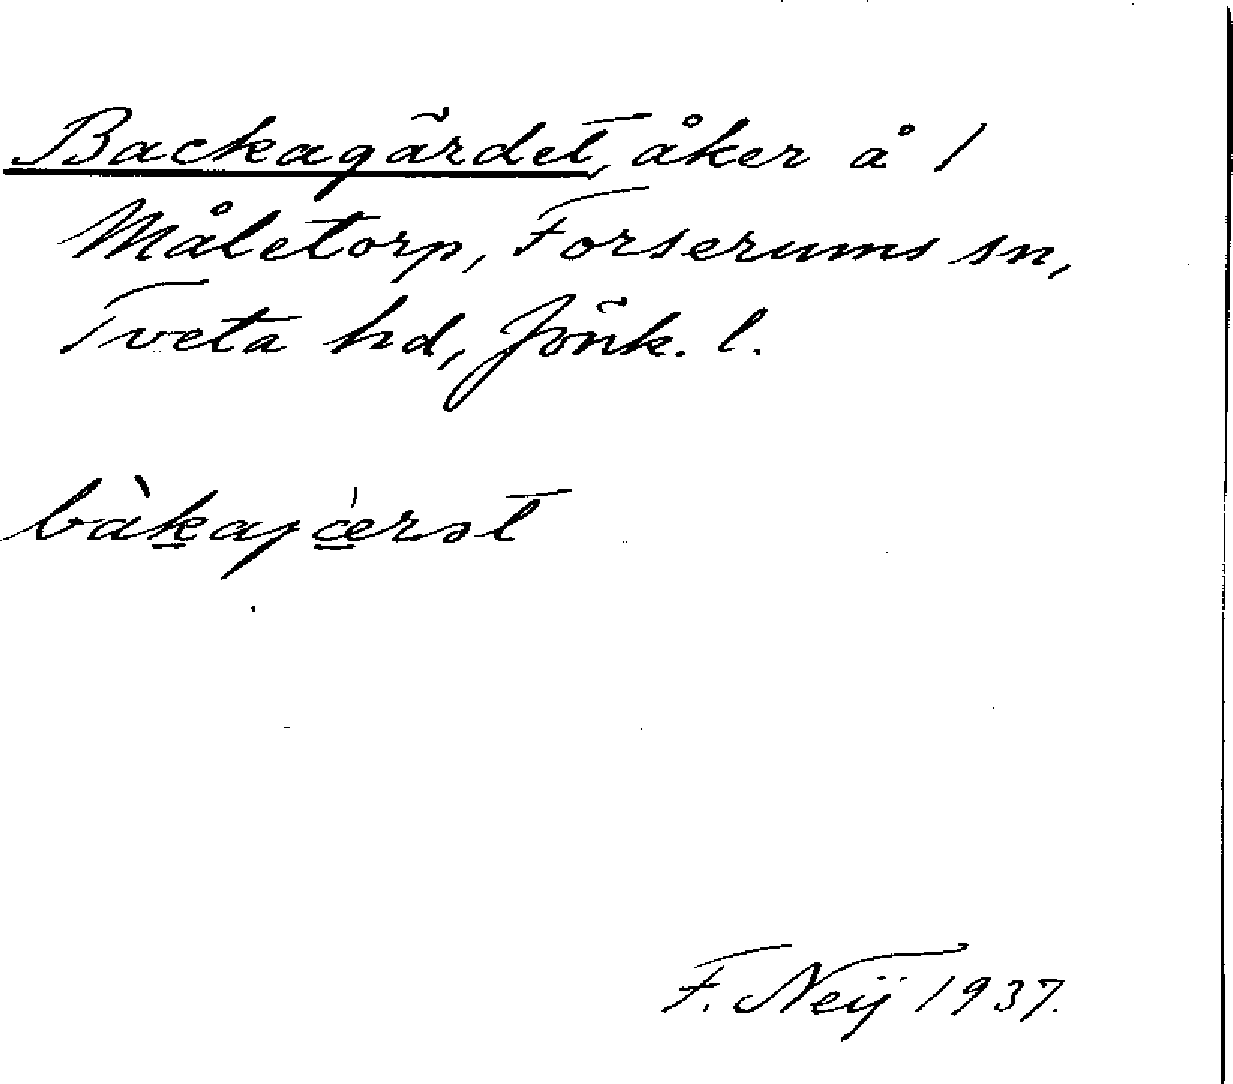 Backagärdet, åker å 1
Måletorp, Forserums sn,
Tveta hd, Jönk. l.
bàkajæ̀rət
F. Neij 1937.